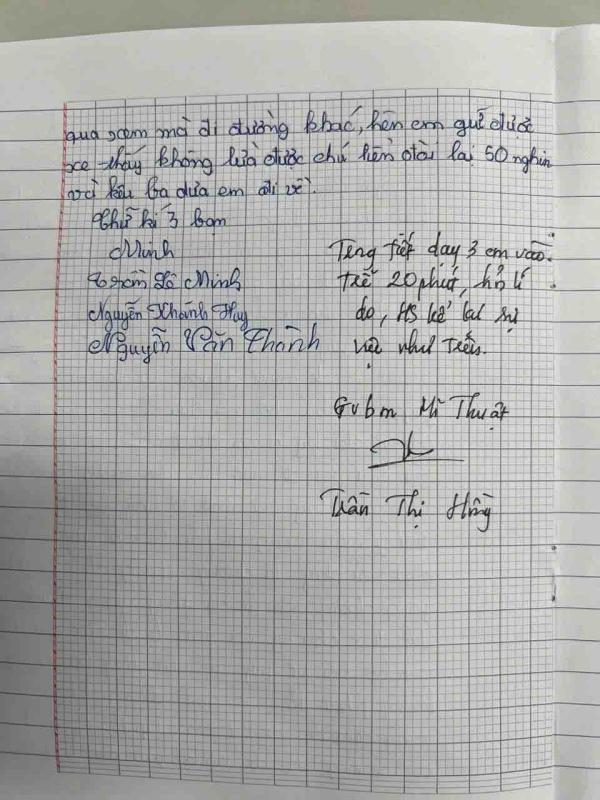 qua xem mà đi đường khác, hên em giữ được
xe thấy không lừa được chú liền đòi lại 50 nghìn
và kêu ba đưa em đi về.
Chữ kí 3 bạn
Minh
Trần Lê Minh
Nguyễn Khánh Huy
Nguyễn Văn Thành
Trong tiết dạy 3 em vào
trễ 20 phút, hỏi lí
do, HS kể lại sự
việc như trên.
Gvbm Mĩ Thuật
Trần Thị Hồng